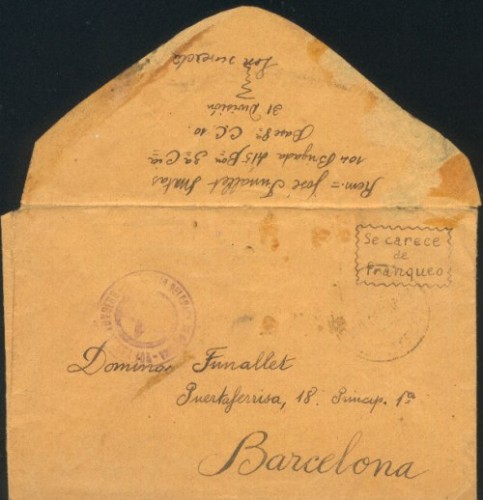 Rem = José Funallet Matas
104 Brigada 415 Bon 3ª Cia
Base 8ª C.C. 10.
31 División
Se carece
de
franqueo
Domingo Funallet
Puertaferrisa, 18. Princip. 1ª
Barcelona